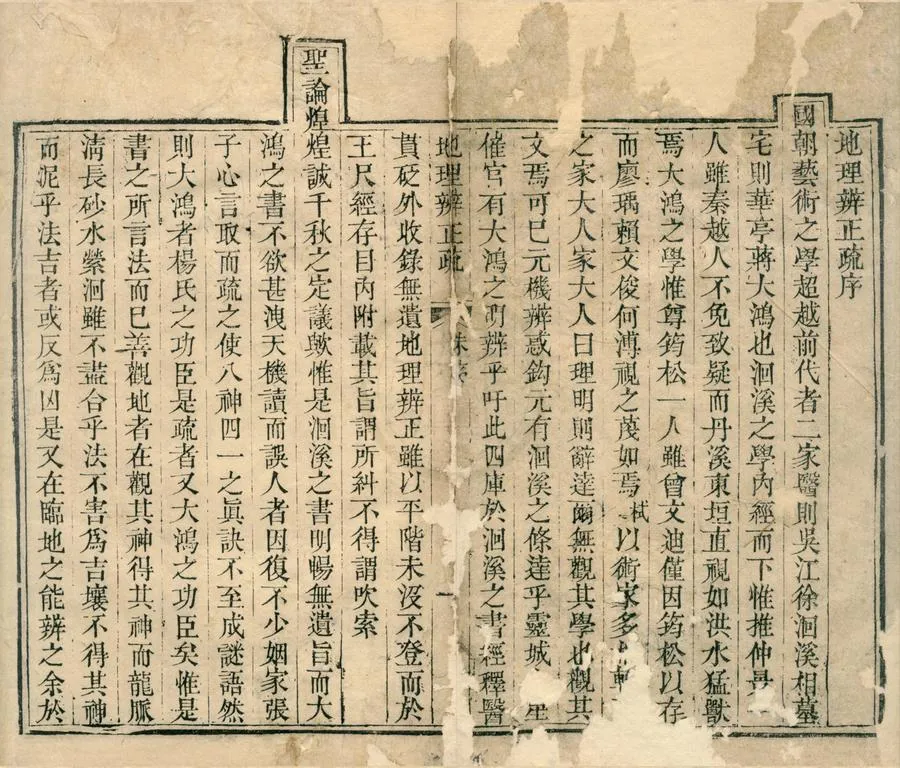 地理辨正疏序
國朝藝術之學超越前代者二家醫則吳江徐洄溪相墓
宅則華亭蔣大鴻也洄溪之學內經而下惟推仲景
人雖秦越人不免致疑而丹溪東垣直視如洪水猛獸
焉大鴻之學惟尊筠松一人雖曾文迪僅因筠松以存
而廖瑀賴文俊何溥視之蔑如焉 栻以術家多
之家大人家大人曰理明則辭達爾無觀其學也觀其
文焉可巳元機辨惑鈎元有洄溪之條達乎靈城
催官有大鴻之明辨乎吁此四庫於洄溪之書經釋醫
地理辨正疏 序 一
貫砭外收錄無遺地理辨正雖以平階未沒不登而於
玉尺經存目內附載其旨謂所糾不得謂吹索
聖論煌煌誠千秋之定議歟惟是洄溪之書明暢無遺旨而大
鴻之書不欲甚洩天機讀而誤人者因復不少姻家張
子心言取而疏之使八神四一之眞訣不至成謎語然
則大鴻者楊氏之功臣是疏者又大鴻之功臣矣惟是
書之所言法而巳善觀地者在觀其神得其神而龍脈
淸長砂水縈洄雖不盡合乎法不害爲吉壤不得其神
而泥乎法吉者或反爲凶是又在臨地之能辨之余於